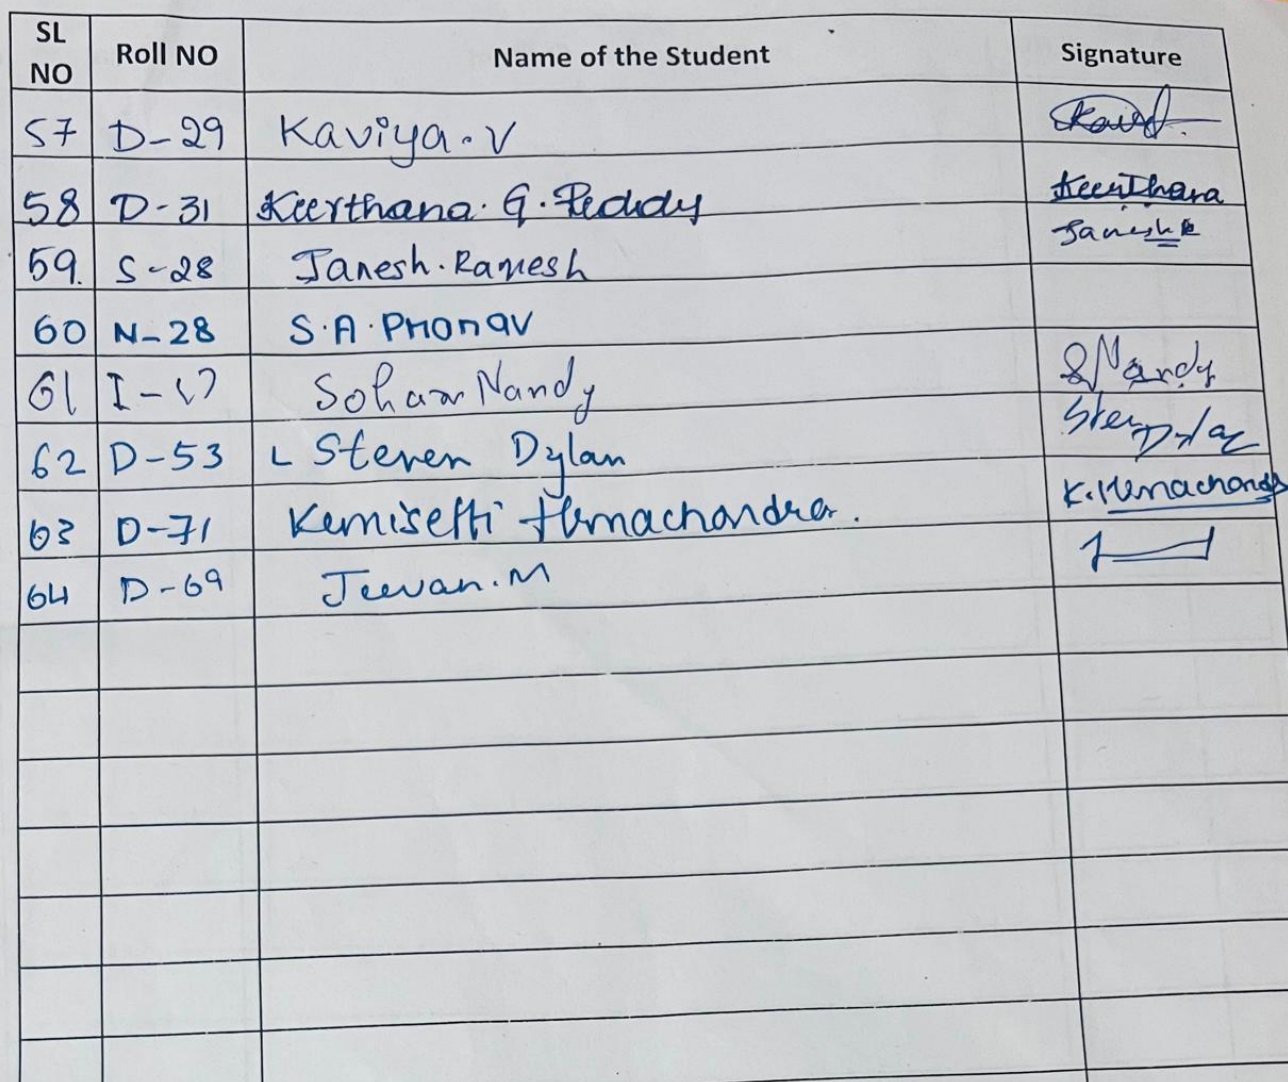 SL NO Roll NO Name of the Student Signature
57 D-29 Kaviya. V
58 D-31 Keerthana. G. Reddy Keerthana
59. S-28 Janesh. Ramesh Janesh
60 N-28 S. A. Pranav
61 I-17 Soham Nandy SNandy
62 D-53 L Steven Dylan Steven Dylan
63 D-71 Kemisetti Hemachandra. K. Hemachandra
64 D-69 Jeevan. M